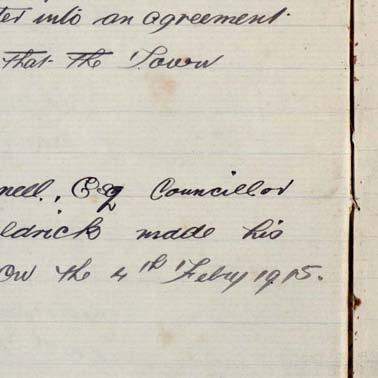 ter into an agreement
that the Town
nell, Esq Councillor
ldrick made his
on the 4th Febry 1915.